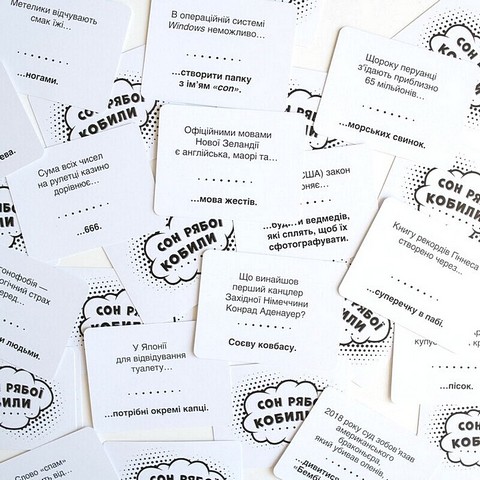 Метелики відчувають
смак їжі...
...ногами.
В операційній системі
Windows неможливо...
...створити папку
з ім'ям «con».
Щороку перуанці
з'їдають приблизно
65 мільйонів...
...морських свинок.
СОН РЯБОЇ
КОБИЛИ
Сума всіх чисел
на рулетці казино
дорівнює...
...666.
Офіційними мовами
Нової Зеландії
є англійська, маорі та...
...мова жестів.
США) закон
...будити ведмедів,
які сплять, щоб їх
сфотографувати.
СОН РЯБОЇ
КОБИЛИ
Книгу рекордів Гіннеса
створено через...
...суперечку в пабі.
Що винайшов
перший канцлер
Західної Німеччини
Конрад Аденауер?
Соєву ковбасу.
страх
людьми.
У Японії
для відвідування
туалету...
...потрібні окремі капці.
...пісок.
СОН РЯБОЇ
КОБИЛИ
2018 року суд зобов'язав
американського
браконьєра
який убивав оленів,
...дивитися
Слово «спам»